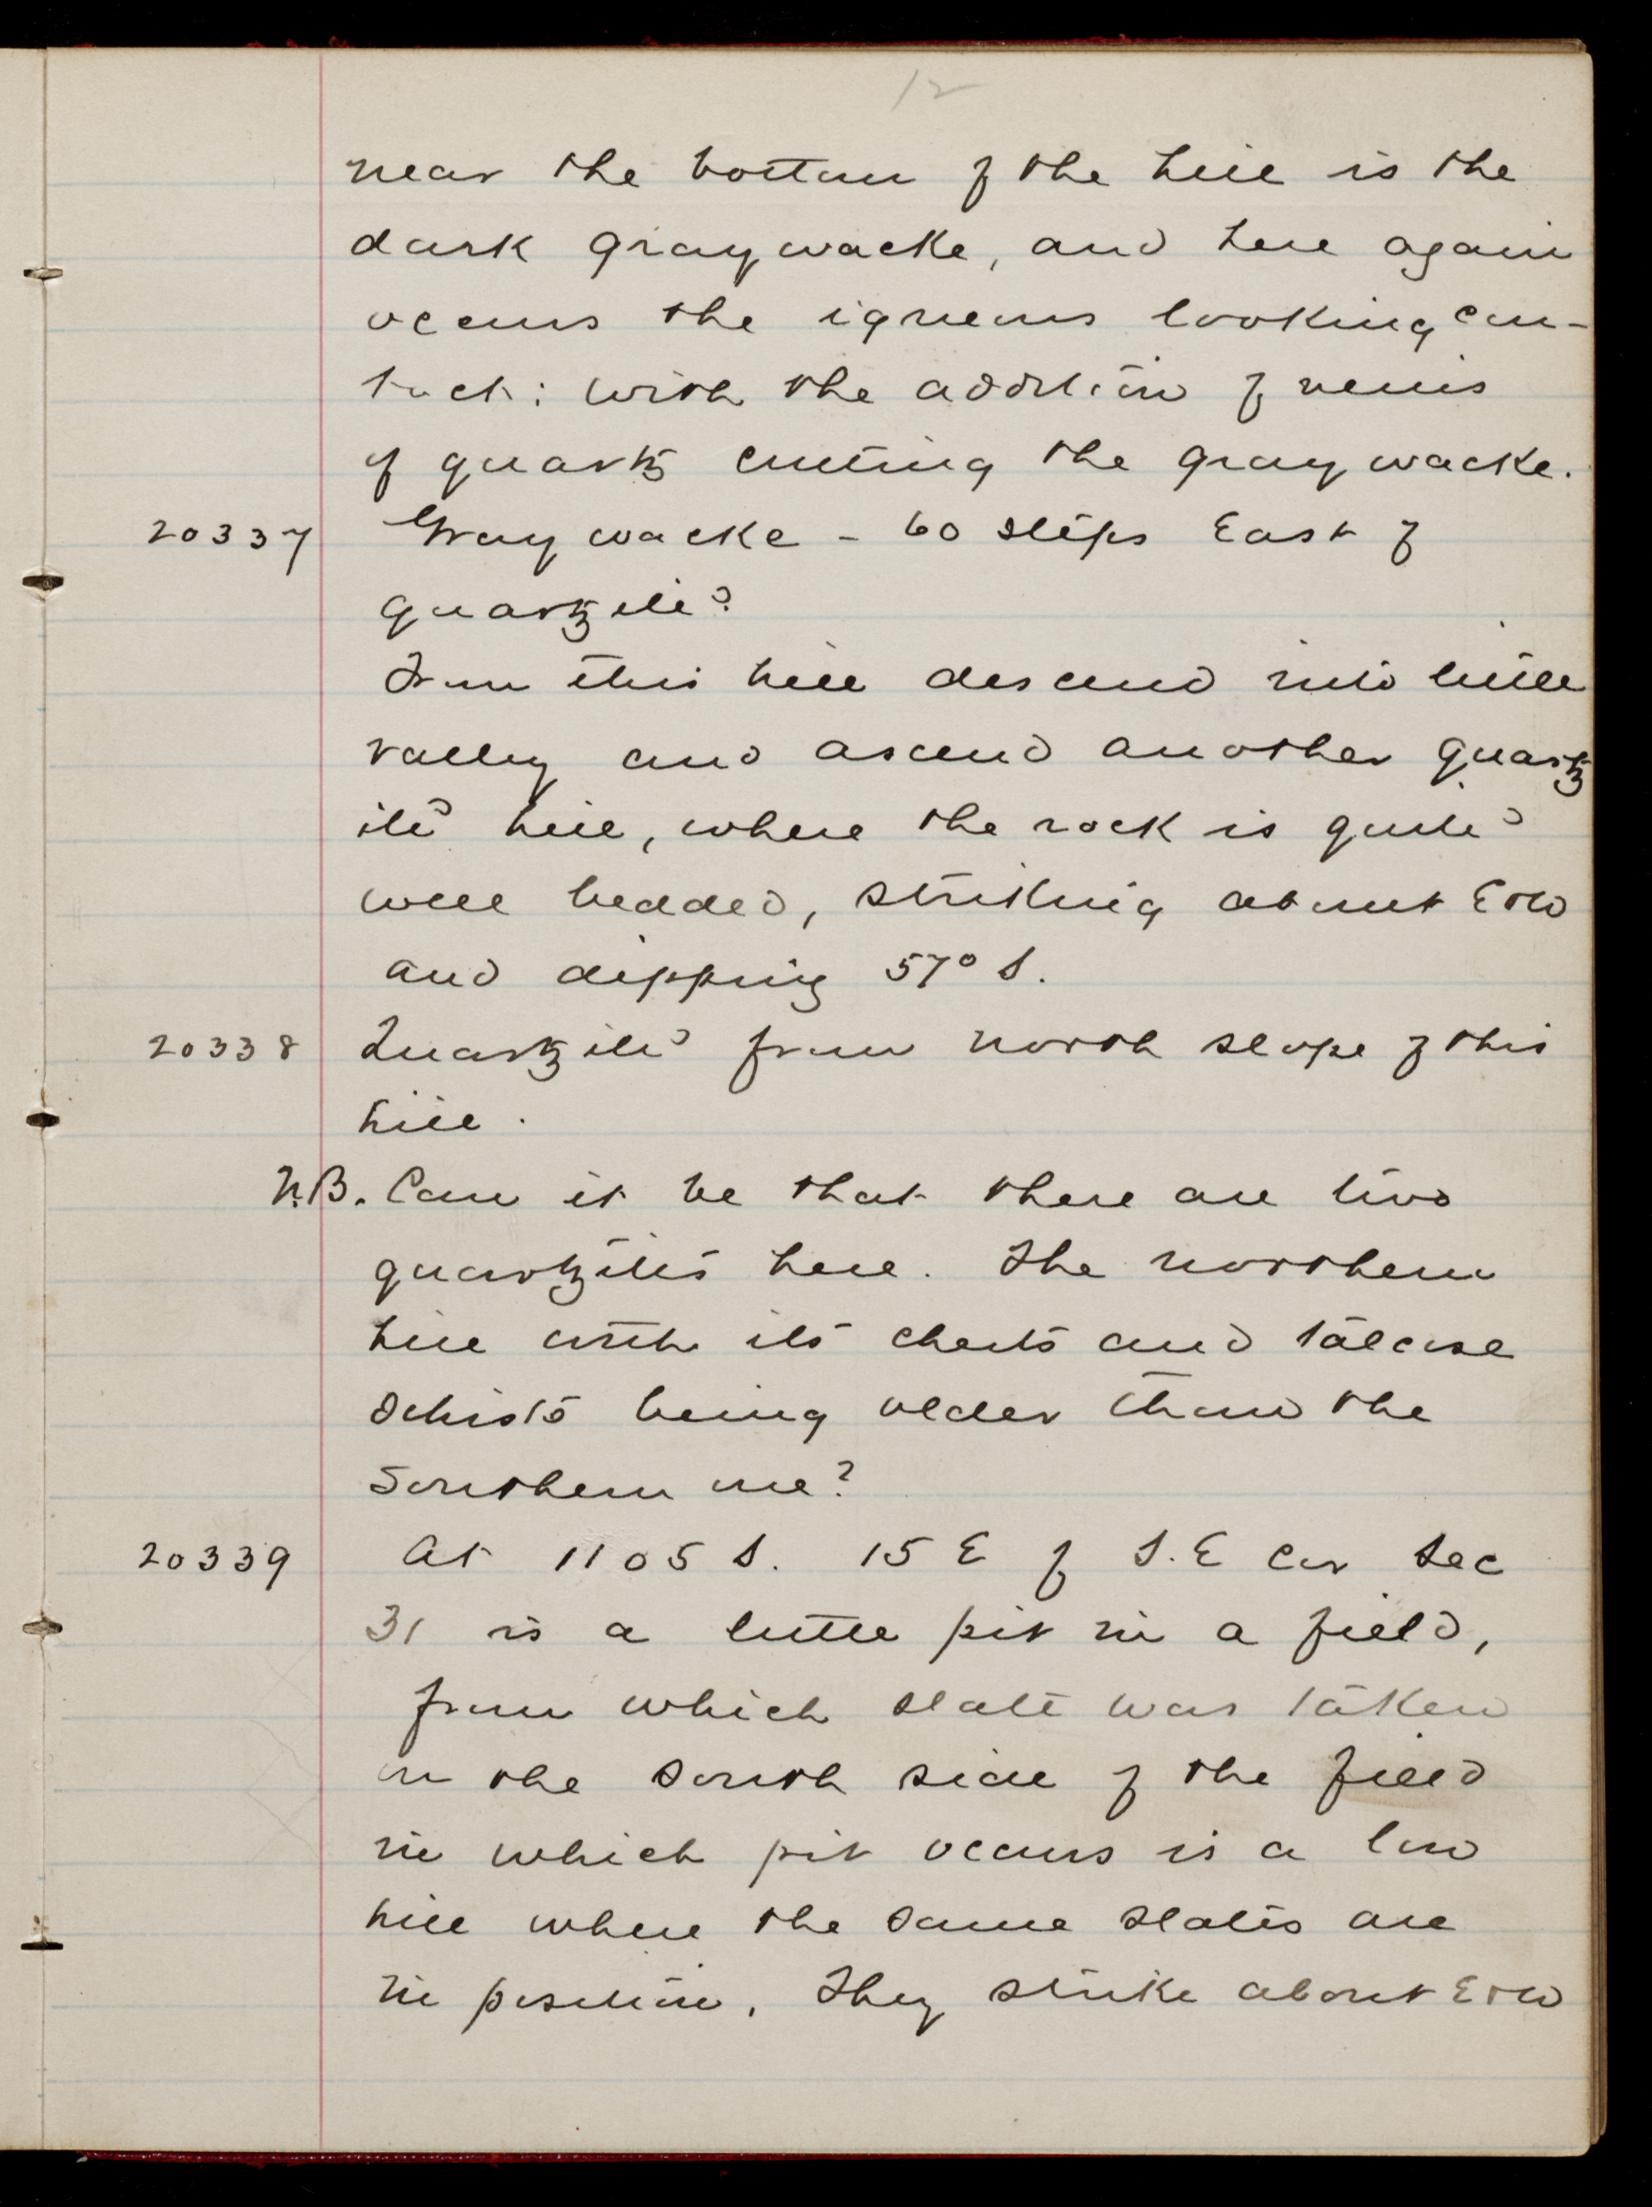 12
near the bottom of the hill is the
dark graywacke, and here again
occurs the igneous looking con-
tact: with the addition of veins
of quartz cutting the graywacke.
20337 Graywacke - 60 steps East of
quartzite
From this hill descend into little
valley and ascend another quartz
ite hill, where the rock is quite
well bedded, striking about E+W
and dipping 57° S.
20338 Quartzite from north slope of this
hill.
N.B. Can it be that there are two
quartzites here. The northern
hill with its cherts and talcose
schists being older than the
southern one?
20339 At 1105 S. 15 E of S.E Cor Sec
31 is a little pit in a field,
from which slate was taken
on the south side of the field
in which pit occurs is a low
hill where the same slates are
in position. They strike about E+W